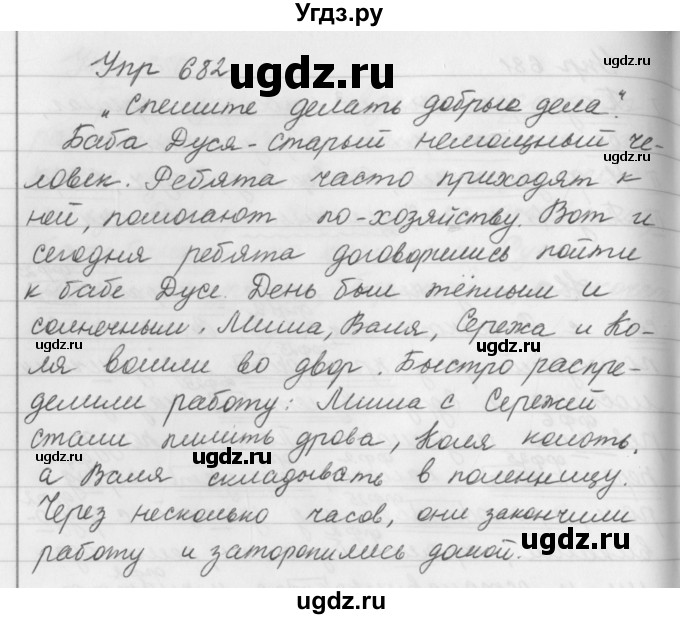 Угдз.ру
Упр 682
ugdz.ru
„Спешите делать добрые дела."
ugdz.ru
Баба Дуся - старый немощный че-
ugdz.ru
ловек. Ребята часто приходят к
ней, помогают по-хозяйству. Вот и
сегодня ребята договорились пойти
к бабе Дусе. День был тёплым и
солнечным. Миша, Валя, Сережа и Ко-
ugdz.ru
ugdz.ru
ля вошли во двор. Быстро распре-
делили работу: Миша с Сережей
стали пилить дрова, Коля колоть,
ugdz.ru
а Валя складывать в поленницу.
Через несколько часов, они закончили
ugdz.ru
работу и заторопились домой.
ugdz.ru